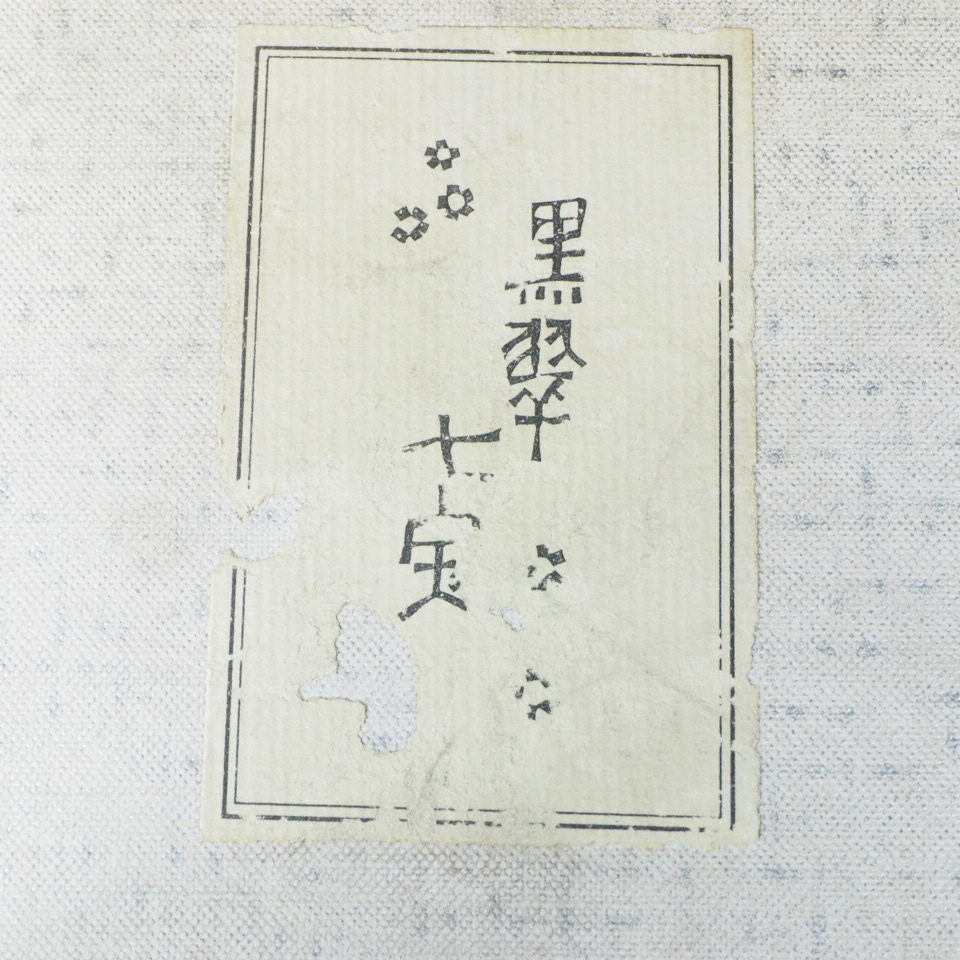 黒翠
七宝